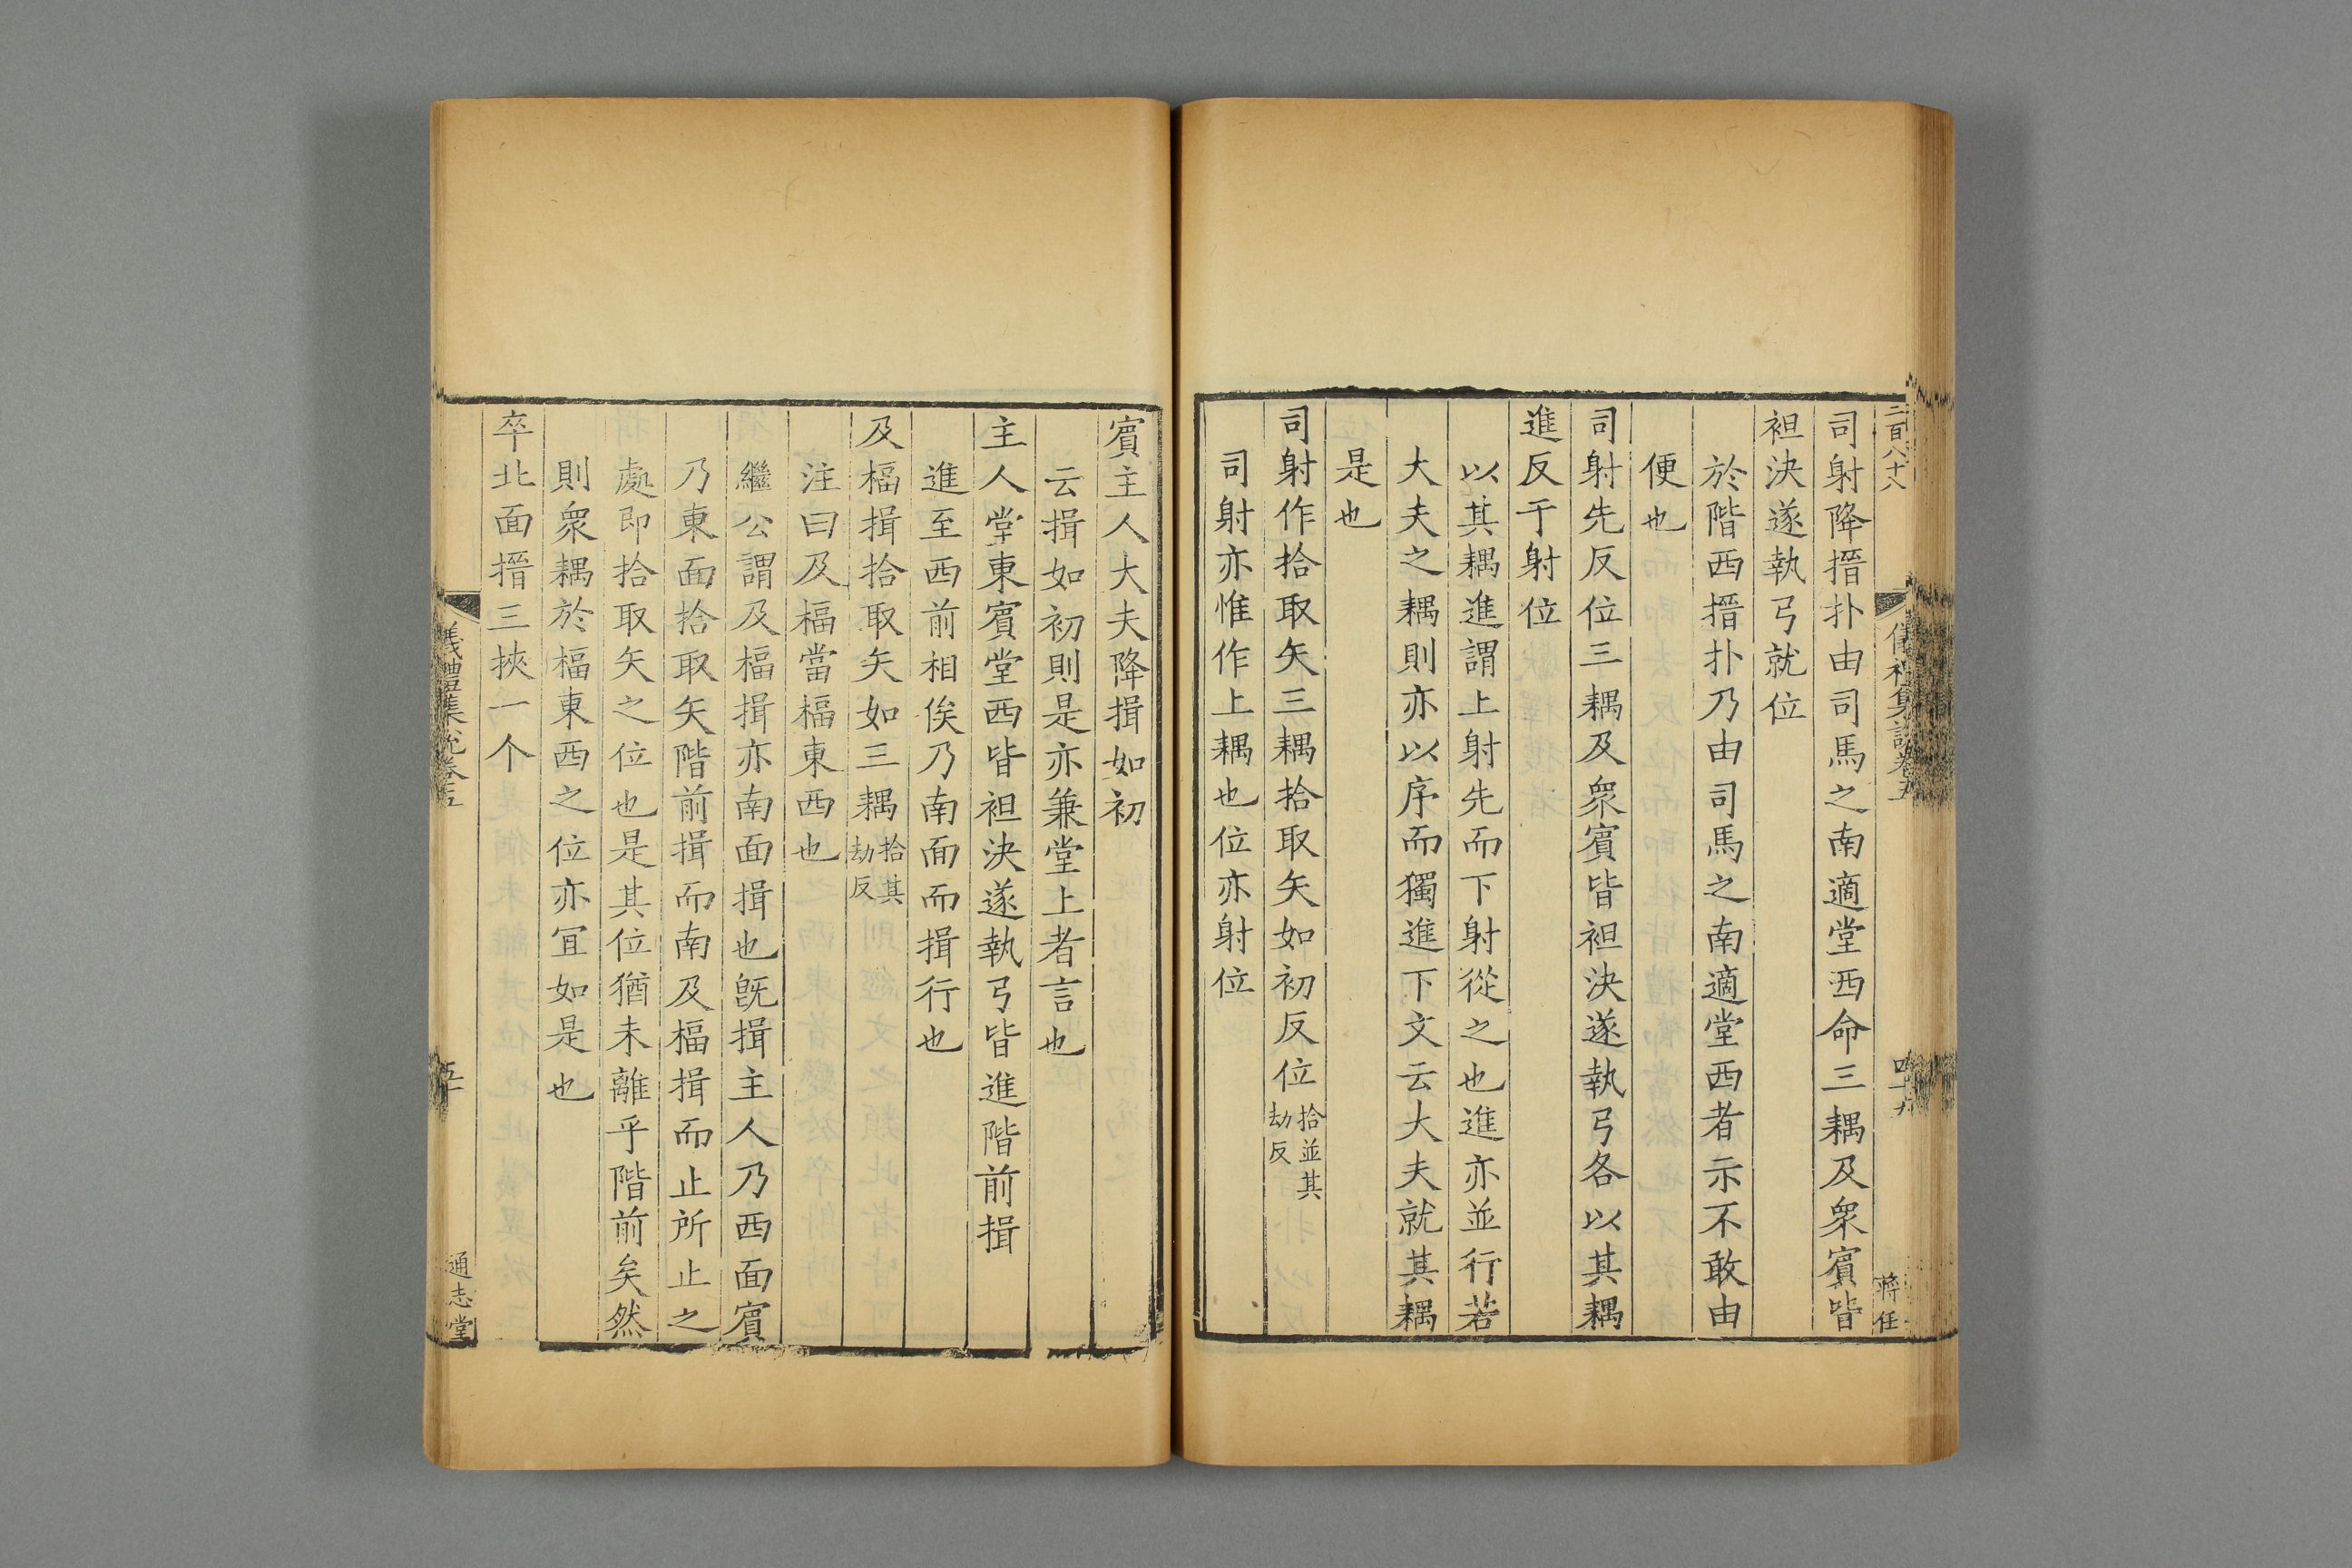 二百八十八
儀禮集說卷五
四十九
蔣任
司射降搢扑由司馬之南適堂西命三耦及衆賔皆
袒決遂執弓就位
於階西搢扑乃由司馬之南適堂西者示不敢由
便也
司射先反位三耦及衆賔皆袒決遂執弓各以其耦
進反于射位
以其耦進謂上射先而下射從之也進亦並行若
大夫之耦則亦以序而獨進下文云大夫就其耦
是也
司射作拾取矢三耦拾取矢如初反位拾並其劫反
司射亦惟作上耦也位亦射位
賔主人大夫降揖如初
云揖如初則是亦兼堂上者言也
主人堂東賔堂西皆袒決遂執弓皆進階前揖
進至西前相俟乃南面而揖行也
及楅揖拾取矢如三耦拾其劫反
注曰及楅當楅東西也
繼公謂及楅揖亦南面揖也旣揖主人乃西面賔
乃東面拾取矢階前揖而南及楅揖而止所止之
處即拾取矢之位也是其位猶未離乎階前矣然
則衆耦於楅東西之位亦冝如是也
卒北面搢三挾一个
儀禮集說卷五
五十
通志堂